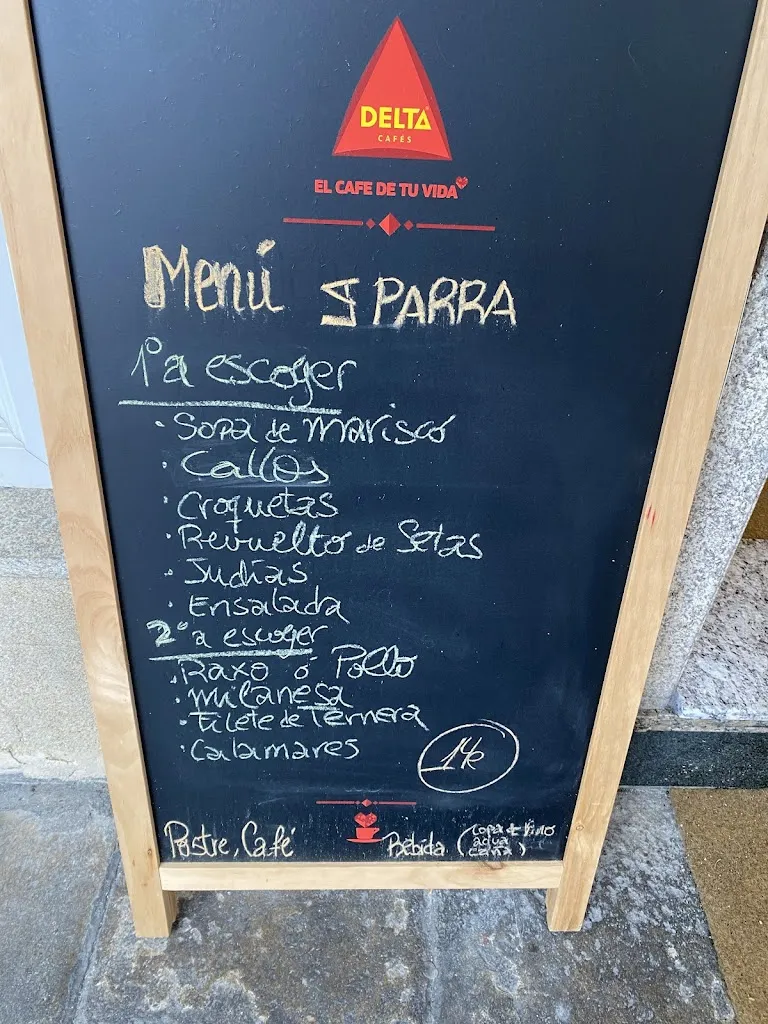 DELTA
CAFÉS
EL CAFE DE TU VIDA
Menú PARRA
1º a escoger
· Sopa de Marisco
· Callos
· Croquetas
· Revuelto de Setas
· Judías
· Ensalada
2º a escoger
· Raxo ó Pollo
· Milanesa
· Filete de Ternera
· Calamares
14€
Postre, Café Bebida (Copa de Vino
agua
caña)